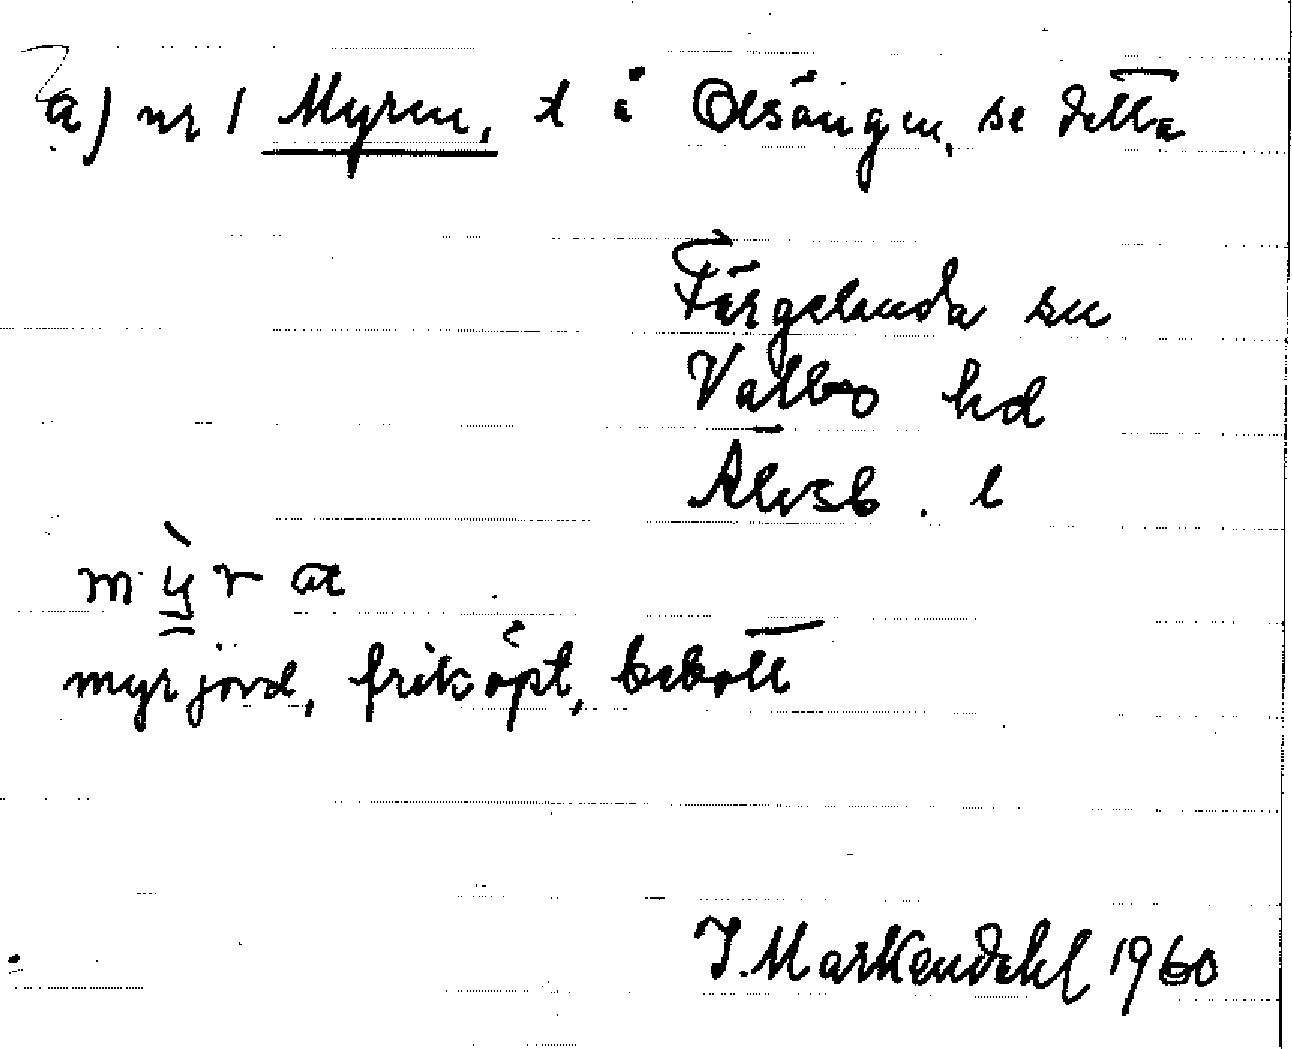 a) nr 1 Myren, t å Olsängen, se detta
Färgelanda sn
Valbo hd
Älvsb. l
mỳr æ
myrjord, friköpt, bebott
J. Markendahl 1960